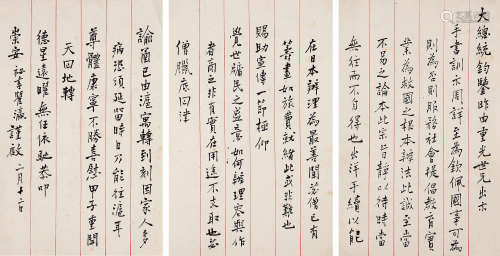 大總統鈞鑒昨由重光世兄出示
手書訓示周詳至為欽佩國事可為
則為否則服務社會提倡教育實
業為救國之根本辦法此誠至當
不易之論本此宗旨靜以待時當
無往而不自得也出洋手續以能
在日本辦理為最善聞芸僧已有
籌畫如旅費就緒此或非難也
賜助宣傳一節極仰
覺世牖民之盛意如何辦理容與作
者商之非有實在用途不支取也芸
僧臘底回津
諭函已由滬寓轉到刻因家人多
病恐須延留時日乃能往滬耳
尊體康寧不勝喜慰甲子重開
天回地轉
德星遠曜無任依馳恭叩
崇安 秘書瞿瀛謹啟 二月十二日